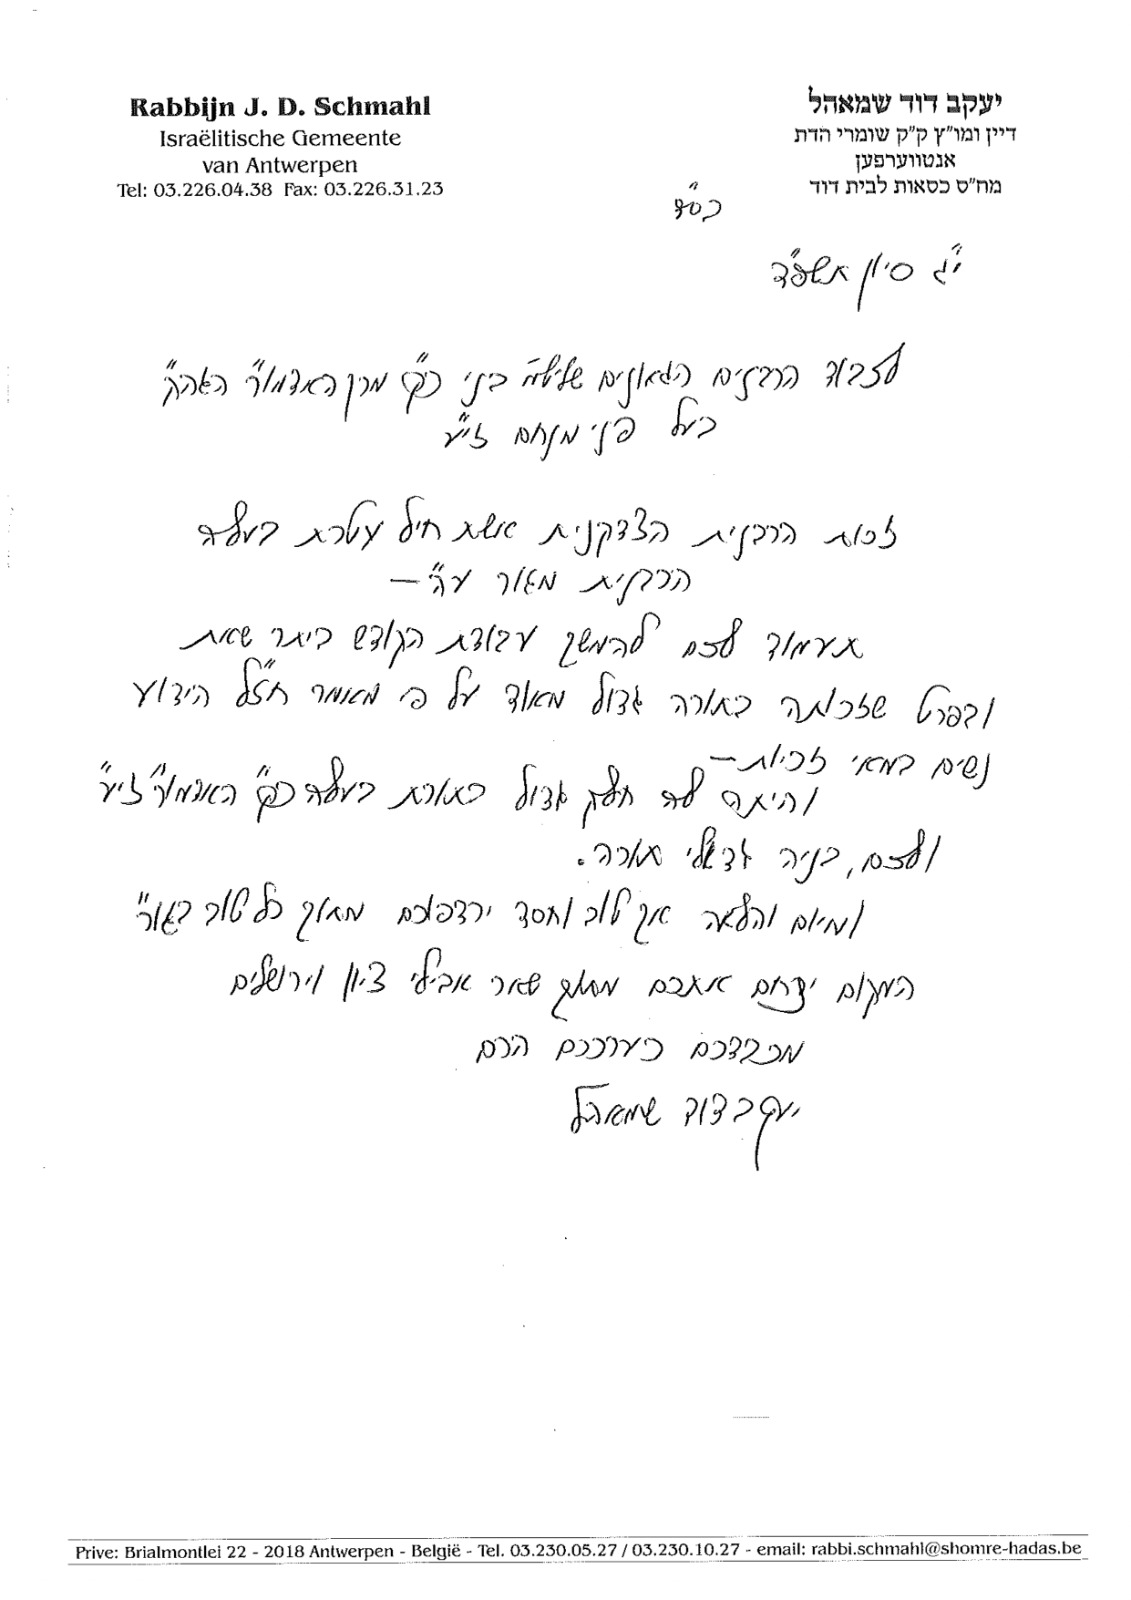 Rabbijn J. D. Schmahl
Israëlitische Gemeente
van Antwerpen
Tel: 03.226.04.38 Fax: 03.226.31.23
יעקב דוד שמאהל
דיין ומו"ץ ק"ק שומרי הדת
אנטווערפען
מח"ס כסאות לבית דוד
בס"ד
י"ג סיון תשפ"ד
לכבוד הרבנים הגאונים שליט"א בני כ"ק מרן האדמו"ר הגה"ק
בעל פני מנחם זי"ע
זכות הרבנית הצדקנית אשת חיל עטרת בעלה
הרבנית מגור ע"ה –
תעמוד לכם להמשך עבודת הקודש ביתר שאת
ובפרט שזכותה בתורה גדול מאוד על פי מאמר חז"ל הידוע
נשים במאי זכיות –
והיתה לה חלק גדול בתורת בעלה כ"ק האדמו"ר זי"ע
ולכם, בניה גדולי תורה.
ומיום והלאה אך טוב וחסד ירדפוכם מתוך כל טוב בגו"ר
המקום ינחם אתכם בתוך שאר אבילי ציון וירושלים
מכבדכם כערככם הרם
יעקב דוד שמאהל
Prive: Brialmontlei 22 - 2018 Antwerpen - België - Tel. 03.230.05.27 / 03.230.10.27 - email: rabbi.schmahl@shomre-hadas.be